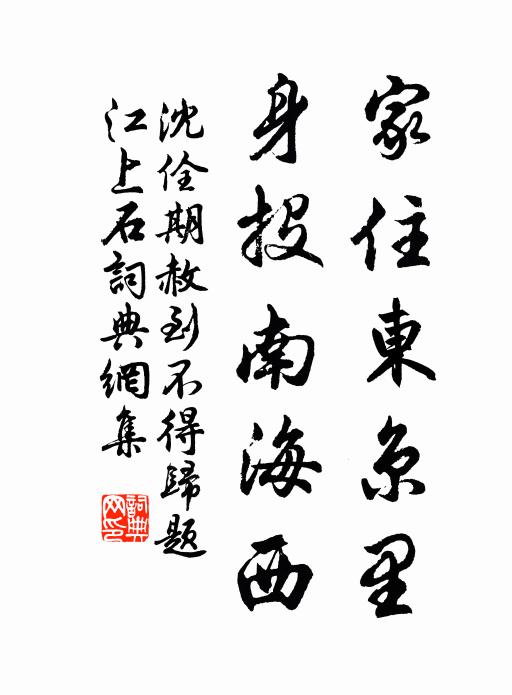 家住東京里
身投南海西
沈佺期赦到不得歸題
江上石詞典網集
詞典
网印